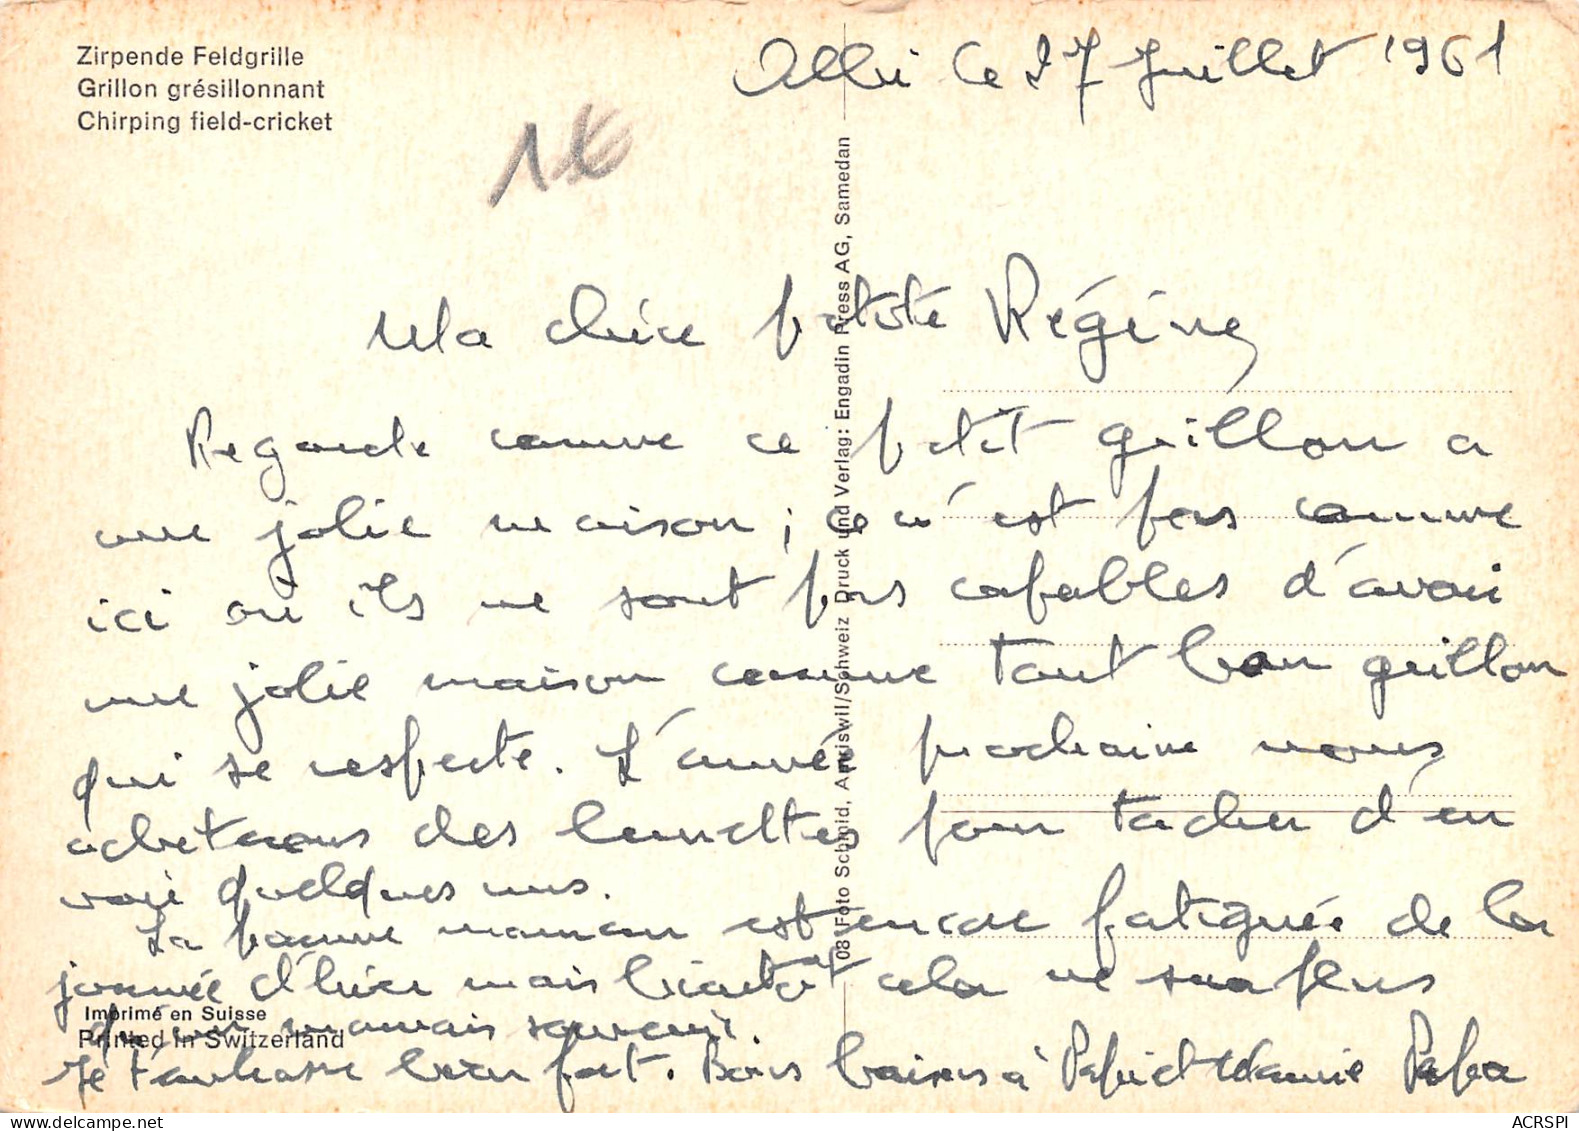 Zirpende Feldgrille
Grillon grésillonnant
Chirping field-cricket
1€
Albi Ce 27 Juillet 1961
Ma chère petite Régine,
Regarde comme ce petit grillon a
une jolie maison ; ce n'est pas comme
ici où ils ne sont pas capables d'avoir
une jolie maison comme tout bon grillon
qui se respecte. L'année prochaine nous
achèterons des lunettes pour tacher d'en
voir quelques uns.
La pauvre maman est encore fatiguée de la
journée d'hier mais bientôt cela ne sera plus
qu'un mauvais souvenir.
Je t'embrasse bien fort. Bons baisers à Papi et Mamie Papa
081 Foto Schmid, Amriswil/Schweiz Druck und Verlag: Engadin Press AG, Samedan
Imprimé en Suisse
Printed in Switzerland
ACRSPI